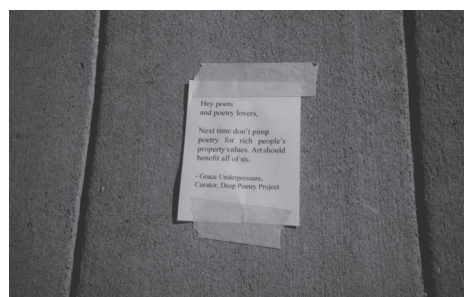 Hey poets
and poetry lovers,
Next time don't pimp
poetry for rich people's
property values. Art should
benefit all of us.
- Grace Underpressure,
Curator, Deep Poetry Project